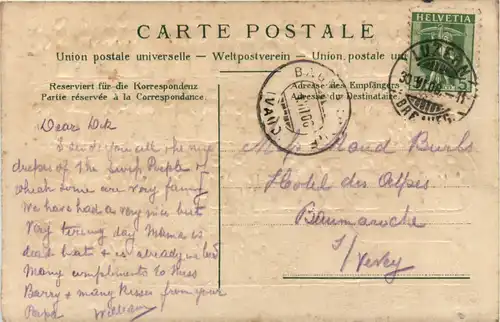 CARTE POSTALE
Union postale universelle — Weltpostverein — Union postale un
Reserviert für die Korrespondenz
Partie réservée à la Correspondance.
Adresse des Empfängers
Adresse du Destinataire
HELVETIA
5
LUZERN
BRF.
BAU
VAUD
Dear
I send you all the nice
dresses of the Swiss People of
which some are very funny
We have had a very nice but
Very tireing day Mama is
dead beat & is already in bed
Many compliments to Miss
Barry & many Kisses from your
Papa William
Miss Maud Burbs
Hotel des Alpes
Baumaroche
s/Vevey